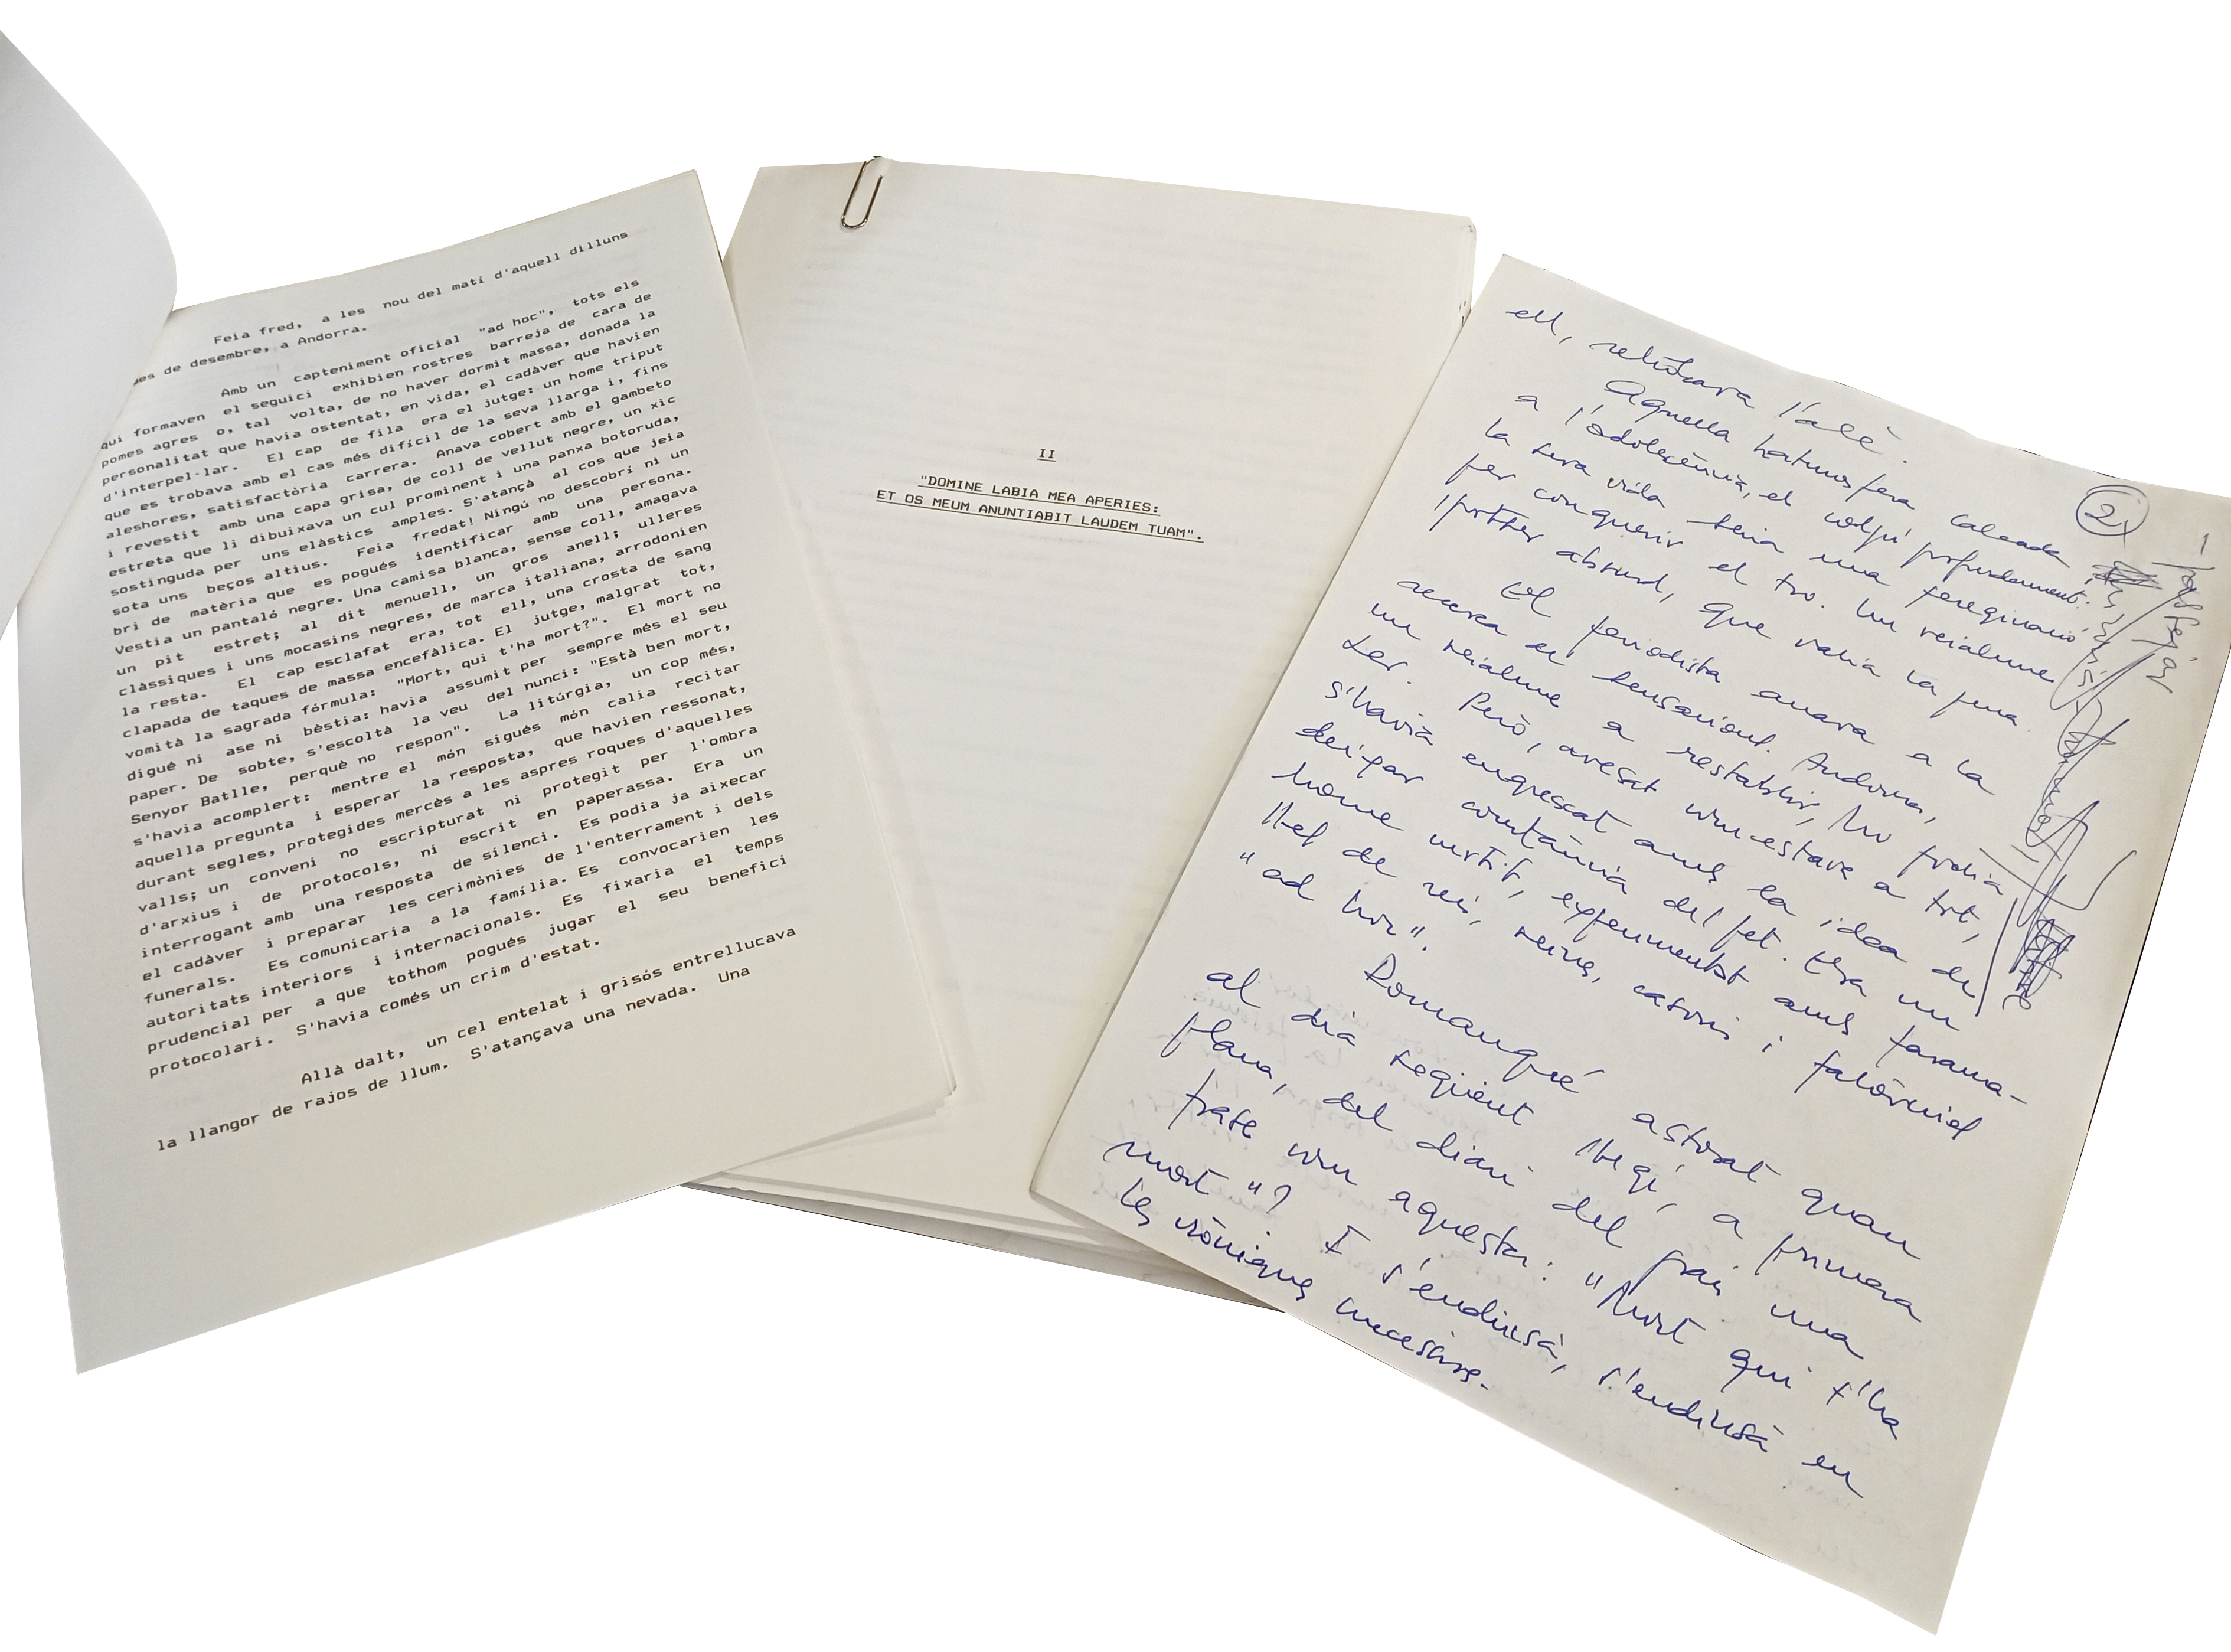 Feia fred, a les nou del matí d'aquell dilluns
mes de desembre, a Andorra.
Amb un capteniment oficial "ad hoc", tots els
qui formaven el seguici exhibien rostres barreja de cara de
pomes agres o, tal volta, de no haver dormit massa, donada la
personalitat que havia ostentat, en vida, el cadàver que havien
d'interpel·lar. El cap de fila era el jutge: un home triput
que es trobava amb el cas més difícil de la seva llarga i, fins
aleshores, satisfactòria carrera. Anava cobert amb el gambeto
i revestit amb una capa grisa, de coll de vellut negre, un xic
estreta que li dibuixava un cul prominent i una panxa botoruda,
sostinguda per uns elàstics amples. S'atançà al cos que jeia
sota uns beços altius. Feia fredat! Ningú no descobri ni un
bri de matèria que es pogués identificar amb una persona.
Vestia un pantaló negre. Una camisa blanca, sense coll, amagava
un pit estret; al dit menuell, un gros anell; ulleres
clàssiques i uns mocasins negres, de marca italiana, arrodonien
la resta. El cap esclafat era, tot ell, una crosta de sang
clapada de taques de massa encefàlica. El jutge, malgrat tot,
vomità la sagrada fórmula: "Mort, qui t'ha mort?". El mort no
digué ni ase ni bèstia: havia assumit per sempre més el seu
paper. De sobte, s'escoltà la veu del nunci: "Està ben mort,
Senyor Batlle, perquè no respon". La litúrgia, un cop més,
s'havia acomplert: mentre el món sigués món calia recitar
aquella pregunta i esperar la resposta, que havien ressonat,
durant segles, protegides mercès a les aspres roques d'aquelles
valls; un conveni no escripturat ni protegit per l'ombra
d'arxius i de protocols, ni escrit en paperassa. Era un
interrogant amb una resposta de silenci. Es podia ja aixecar
el cadàver i preparar les cerimònies de l'enterrament i dels
funerals. Es comunicaria a la família. Es convocarien les
autoritats interiors i internacionals. Es fixaria el temps
prudencial per a que tothom pogués jugar el seu benefici
protocolari. S'havia comés un crim d'estat.
Allà dalt, un cel entelat i grisós entrellucava
la llangor de rajos de llum. S'atançava una nevada. Una
II
"DOMINE LABIA MEA APERIES:
ET OS MEUM ANUNTIABIT LAUDEM TUAM".
2
ell, retrobava l'alè.
Aquella hatmosfera calcada
a l'adolescència, el colpí profundament:
la seva vida seria una peregrinació
per conquerir el tro. Un reialme
potser absurd, que valia la pena.
El periodista anava a la
recerca de sensacions. Andorra,
un reialme a restablir, ho podia
ser. Però, avesat com estava a tot,
s'havia engrescat amb la idea de
deixar constància del fet. Era un
home instit, experimentat amb farama-
llef de reis, reines, casoris i
"ad hoc".
Romangué astorat quan
al dia següent llegí, a primera
plana, del diari del país una
frase com aquesta: "Mort qui t'ha
mort"? I s'endinsà, s'endinsà en
les cròniques necesàries.